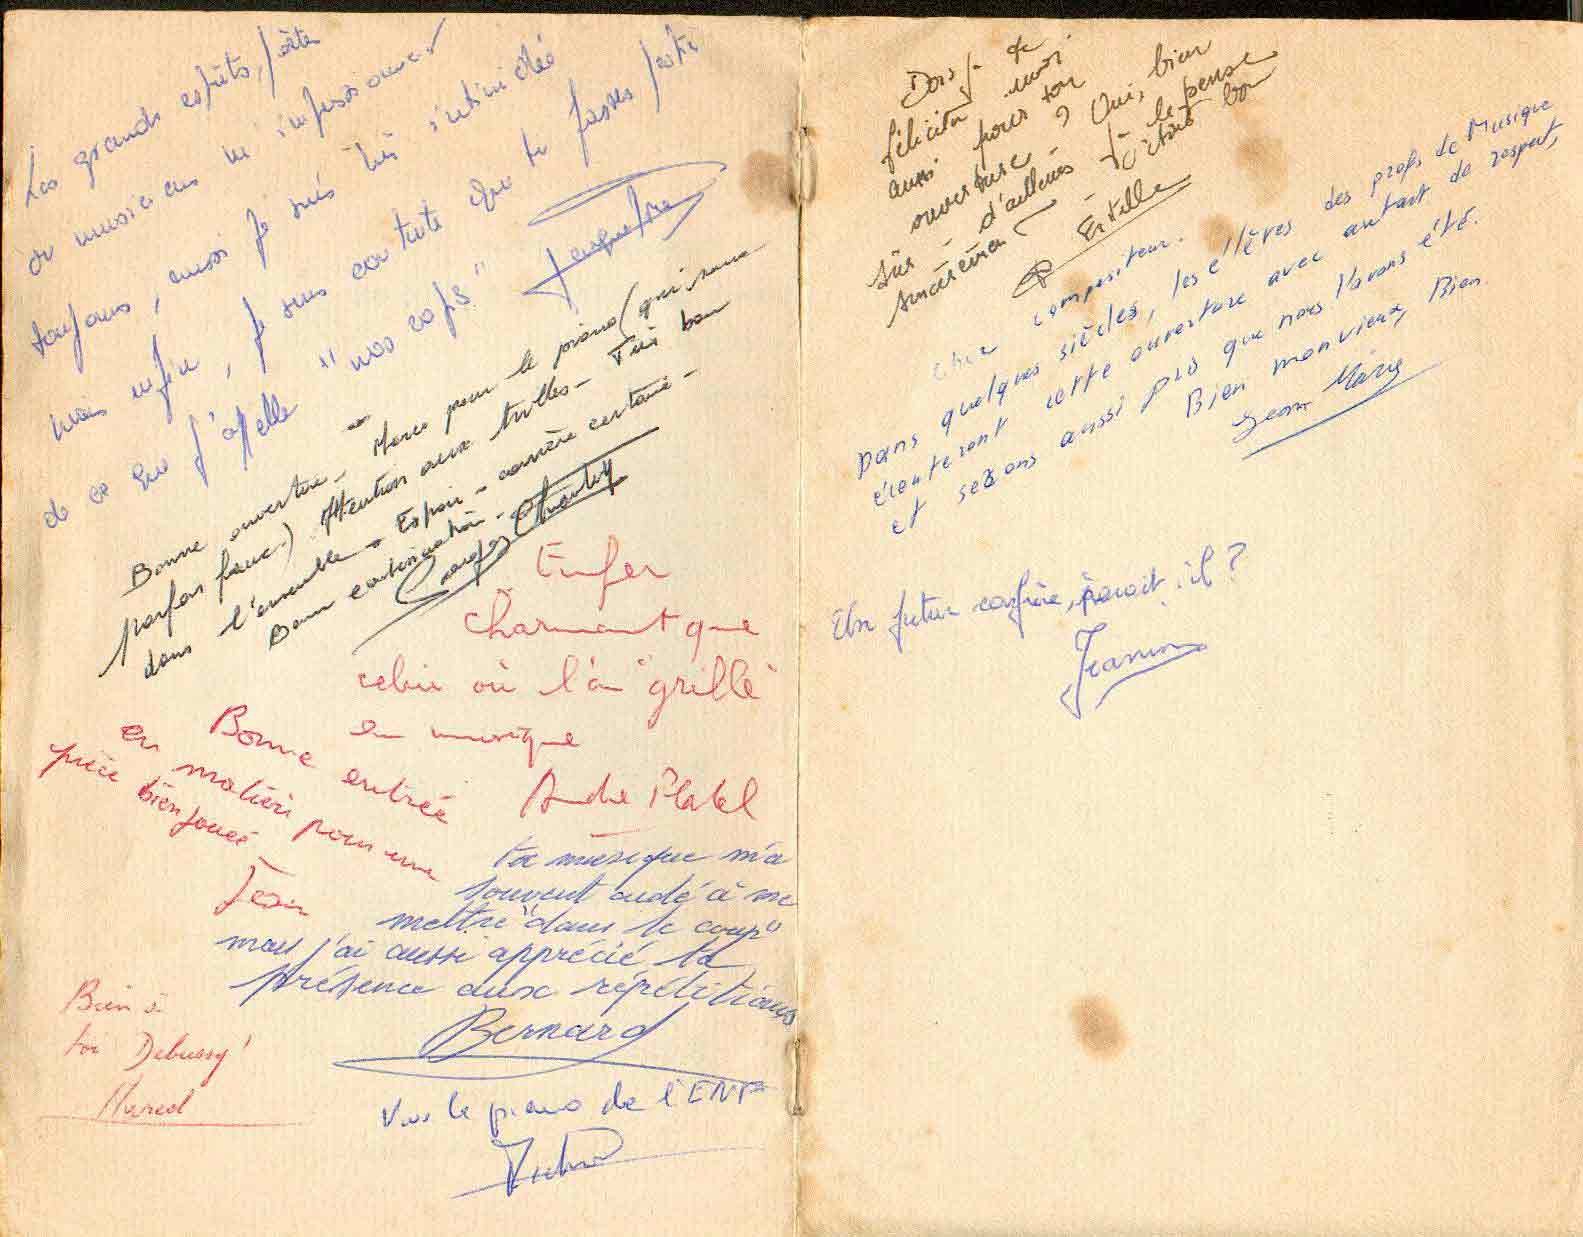 Les grands esprits, poètes
ou musiciens m'impressionnent
toujours, aussi je suis très intimidée
mais enfin, je suis contente que tu fasses partie
de ce que j'appelle "nos caps"
Bonne ouverture - Merci pour le piano (qui sonne
parfois faux.) Attention aux trilles - Très bon
dans l'ensemble - Espoir - carrière certaine -
Bonne continuation -
Enfer
charmant que
celui où l'on "grille"
en musique
André Platel
Bonne entrée
en matière pour une
pièce bien jouée
Jean
ta musique m'a
souvent aidé à me
mettre "dans le coup"
mais j'ai aussi apprécié ta
présence aux répétitions
Bernard
Bien à
toi Debussy!
Vive le piano de l'ENP
Dois-je te
féliciter moi
aussi pour ton
ouverture ? Oui, bien
sûr - d'ailleurs je le pense
sincèrement - c'était bon
Estelle
Cher compositeur.
Dans quelques siècles, les élèves des profs de Musique
écouteront cette ouverture avec autant de respect,
et seront aussi pris que nous l'avons été.
Bien mon vieux, Bien.
Jean Marie
Un futur confrère, paraît-il ?